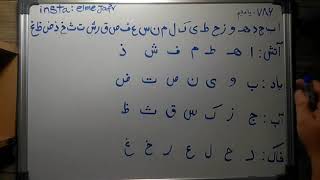 insta: elmejafr ۷۸۶
ا ب ج د ه و ز ح ط ی ک ل م ن س ع ف ص ق ر ش ت ث خ ذ ض ظ غ
آتش: ا ه ط م ف ش ذ
باد: ب و ی ن ص ت ض
آب: ج ز ک س ق ث ظ
خاک: د ح ل ع ر خ غ